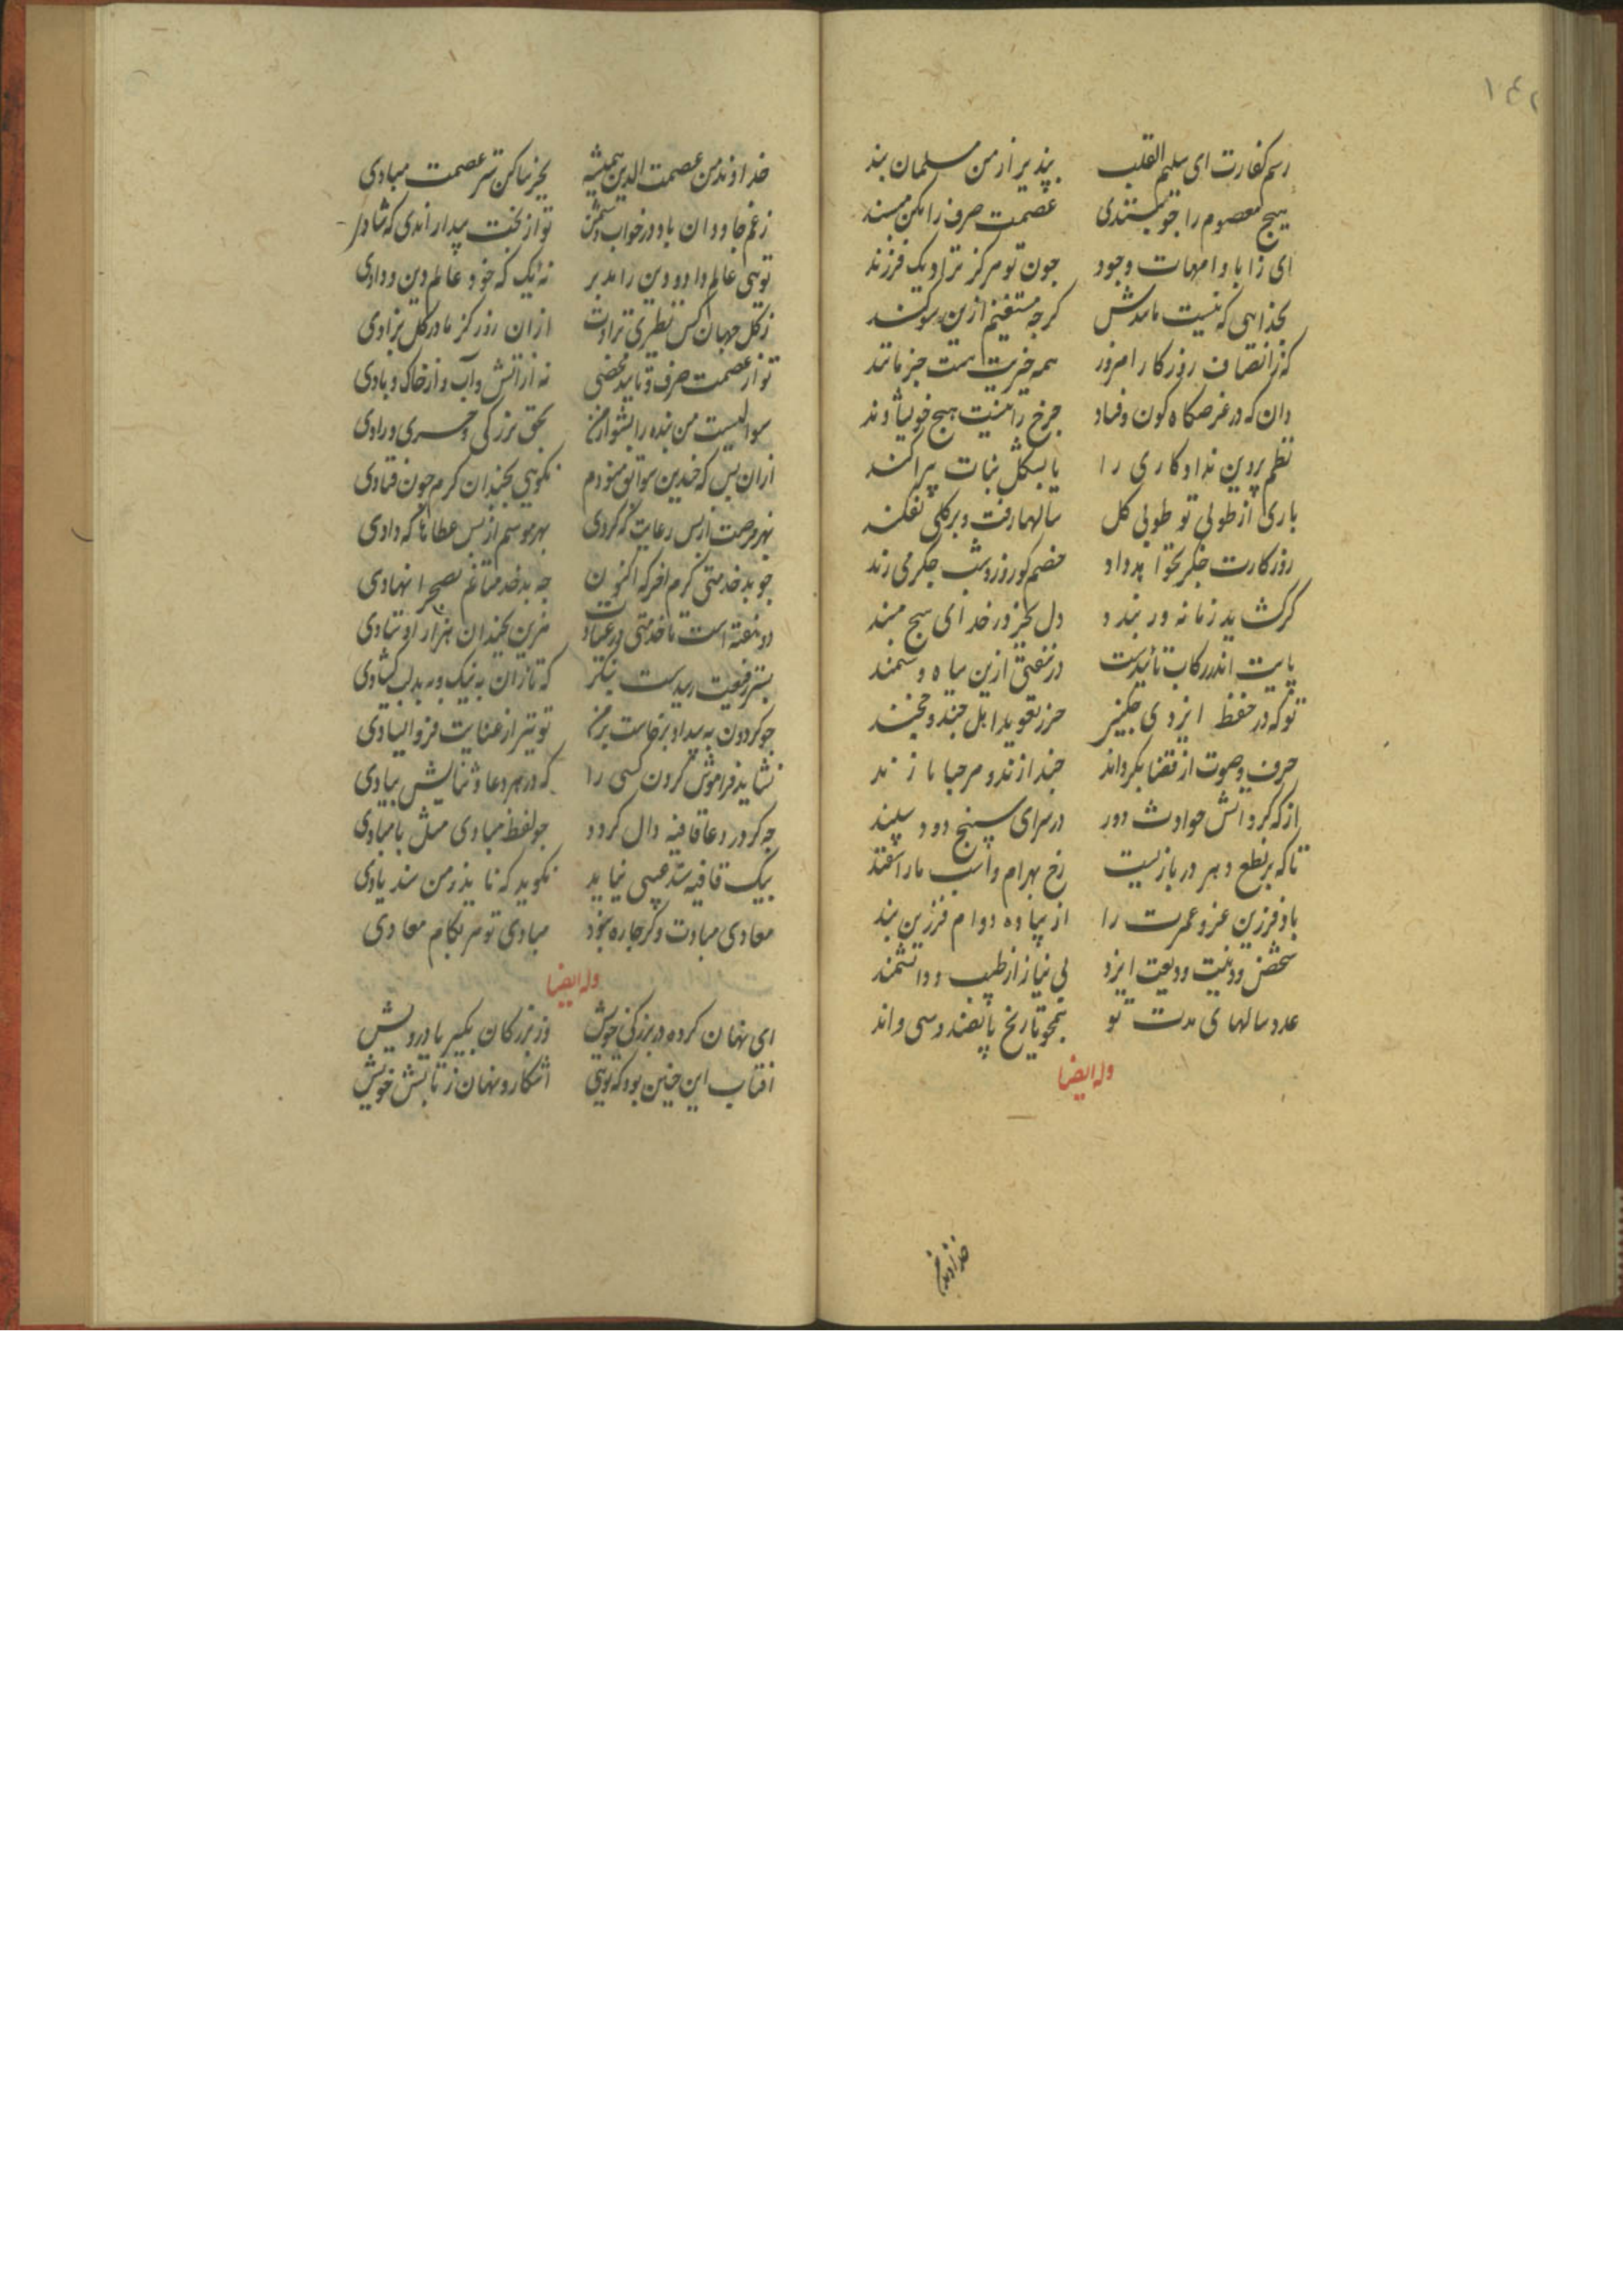 ۱٤۲
رسم کفارت ای سلیم القلب بپذیر از من مسلمان بند
هیچ معصوم را جو عصمت صرف را مکن مسند
ای ز آبا و امهات وجود جون تو هرکز نزاد یک فرزند
بخذایی که نیست مانندش کرجه مستغنیم ازین سوکند
که ز انصاف روزکار امروز همه خیریت هست جز مانند
دان که در عرصکاه کون و فساد جرخ را نیست هیج خویشاوند
نظم پروین نداد کاری را تا بشکل بنات نپراکند
باری از طوبی تو طوبی کل سالها رفت و برکی نفکند
روزکارت جکر نخواهد داد خصم کو روز و شب جکر می رند
کرکشاید زمانه ور بندد دل بجز در خدای هیج مبند
پایت اندر رکاب تأییدست ازین سیاه و سمند
تو که در حفظ ایزدی جکنی حرز و تعوید اهل جند و خجند
حرف و صوت ار قضا بکرداند جند ازند و مرحبا پازند
از که کرد آتش حوادث دور در سرای سپنج دود سپند
تا که بر نطع دهر در بازیست رخ بهرام و اسب ماراسفند
باد فرزین عز و عمرت را از پیاده دوام فرزین بند
شخص و دینت ودیعت ایزد بی نیاز از طبیب و دانشمند
عدد سالهای مدت تو همجو تاریخ پانصد و سی واند
وله ایضا
خداوند من
خداوند من عصمت الدین همیشه بجز ساکن ستر عصمت مبادی
زغم جاودان باد در خواب دشمن تو از بخت بیدار اندی که شادی
تویی عالم داد و دین را مدبر نه یک که خود عالم دین و دادی
ز کل جهان کس نظیری نزادت از ان روز کز مادر کل بزادی
تو از عصمت صرف و تایید محضی نه از آتش و آب و از خاک و بادی
سوالیست من بنده را بشنو از من بحق بزرکی و حری و رادی
ازان پس که جندین سوابق نمودم نکویی بجندان کرم جون فتادی
بهر فرصت از بس رعایت که کردی بهر موسم از بس عطاها که دادی
جو بد خدمتی کردم آخر که اکنون جه بد خدمتیاغم بصحرا نهادی
دو هفته است تا خدمتی
بستر رفیعت رسیدست بنکر که تا زان به نیک و به بد لب کشادی
جو کردون به بیداد برخاست بر من تو نیز از عنایت فرو ایستادی
نشاید فراموش کردن کسی را که در هر دعا و ثنایش بیادی
جه کر در دعا قافیه دال کردد جو لفظ مبادی مثل با مبادی
بیک قافیه شد عیبی نیاید نکوید که ناید ز من شد یادی
معادی مبادت وکر جاره نبود مبادی تو هر بکام معادی
وله ایضا
ای نهان کرده در بزرکی خویش وز بزرکان بکبریا در پیش
افتاب این جنین بود که تویی آشکار و نهان ز تابش خویش